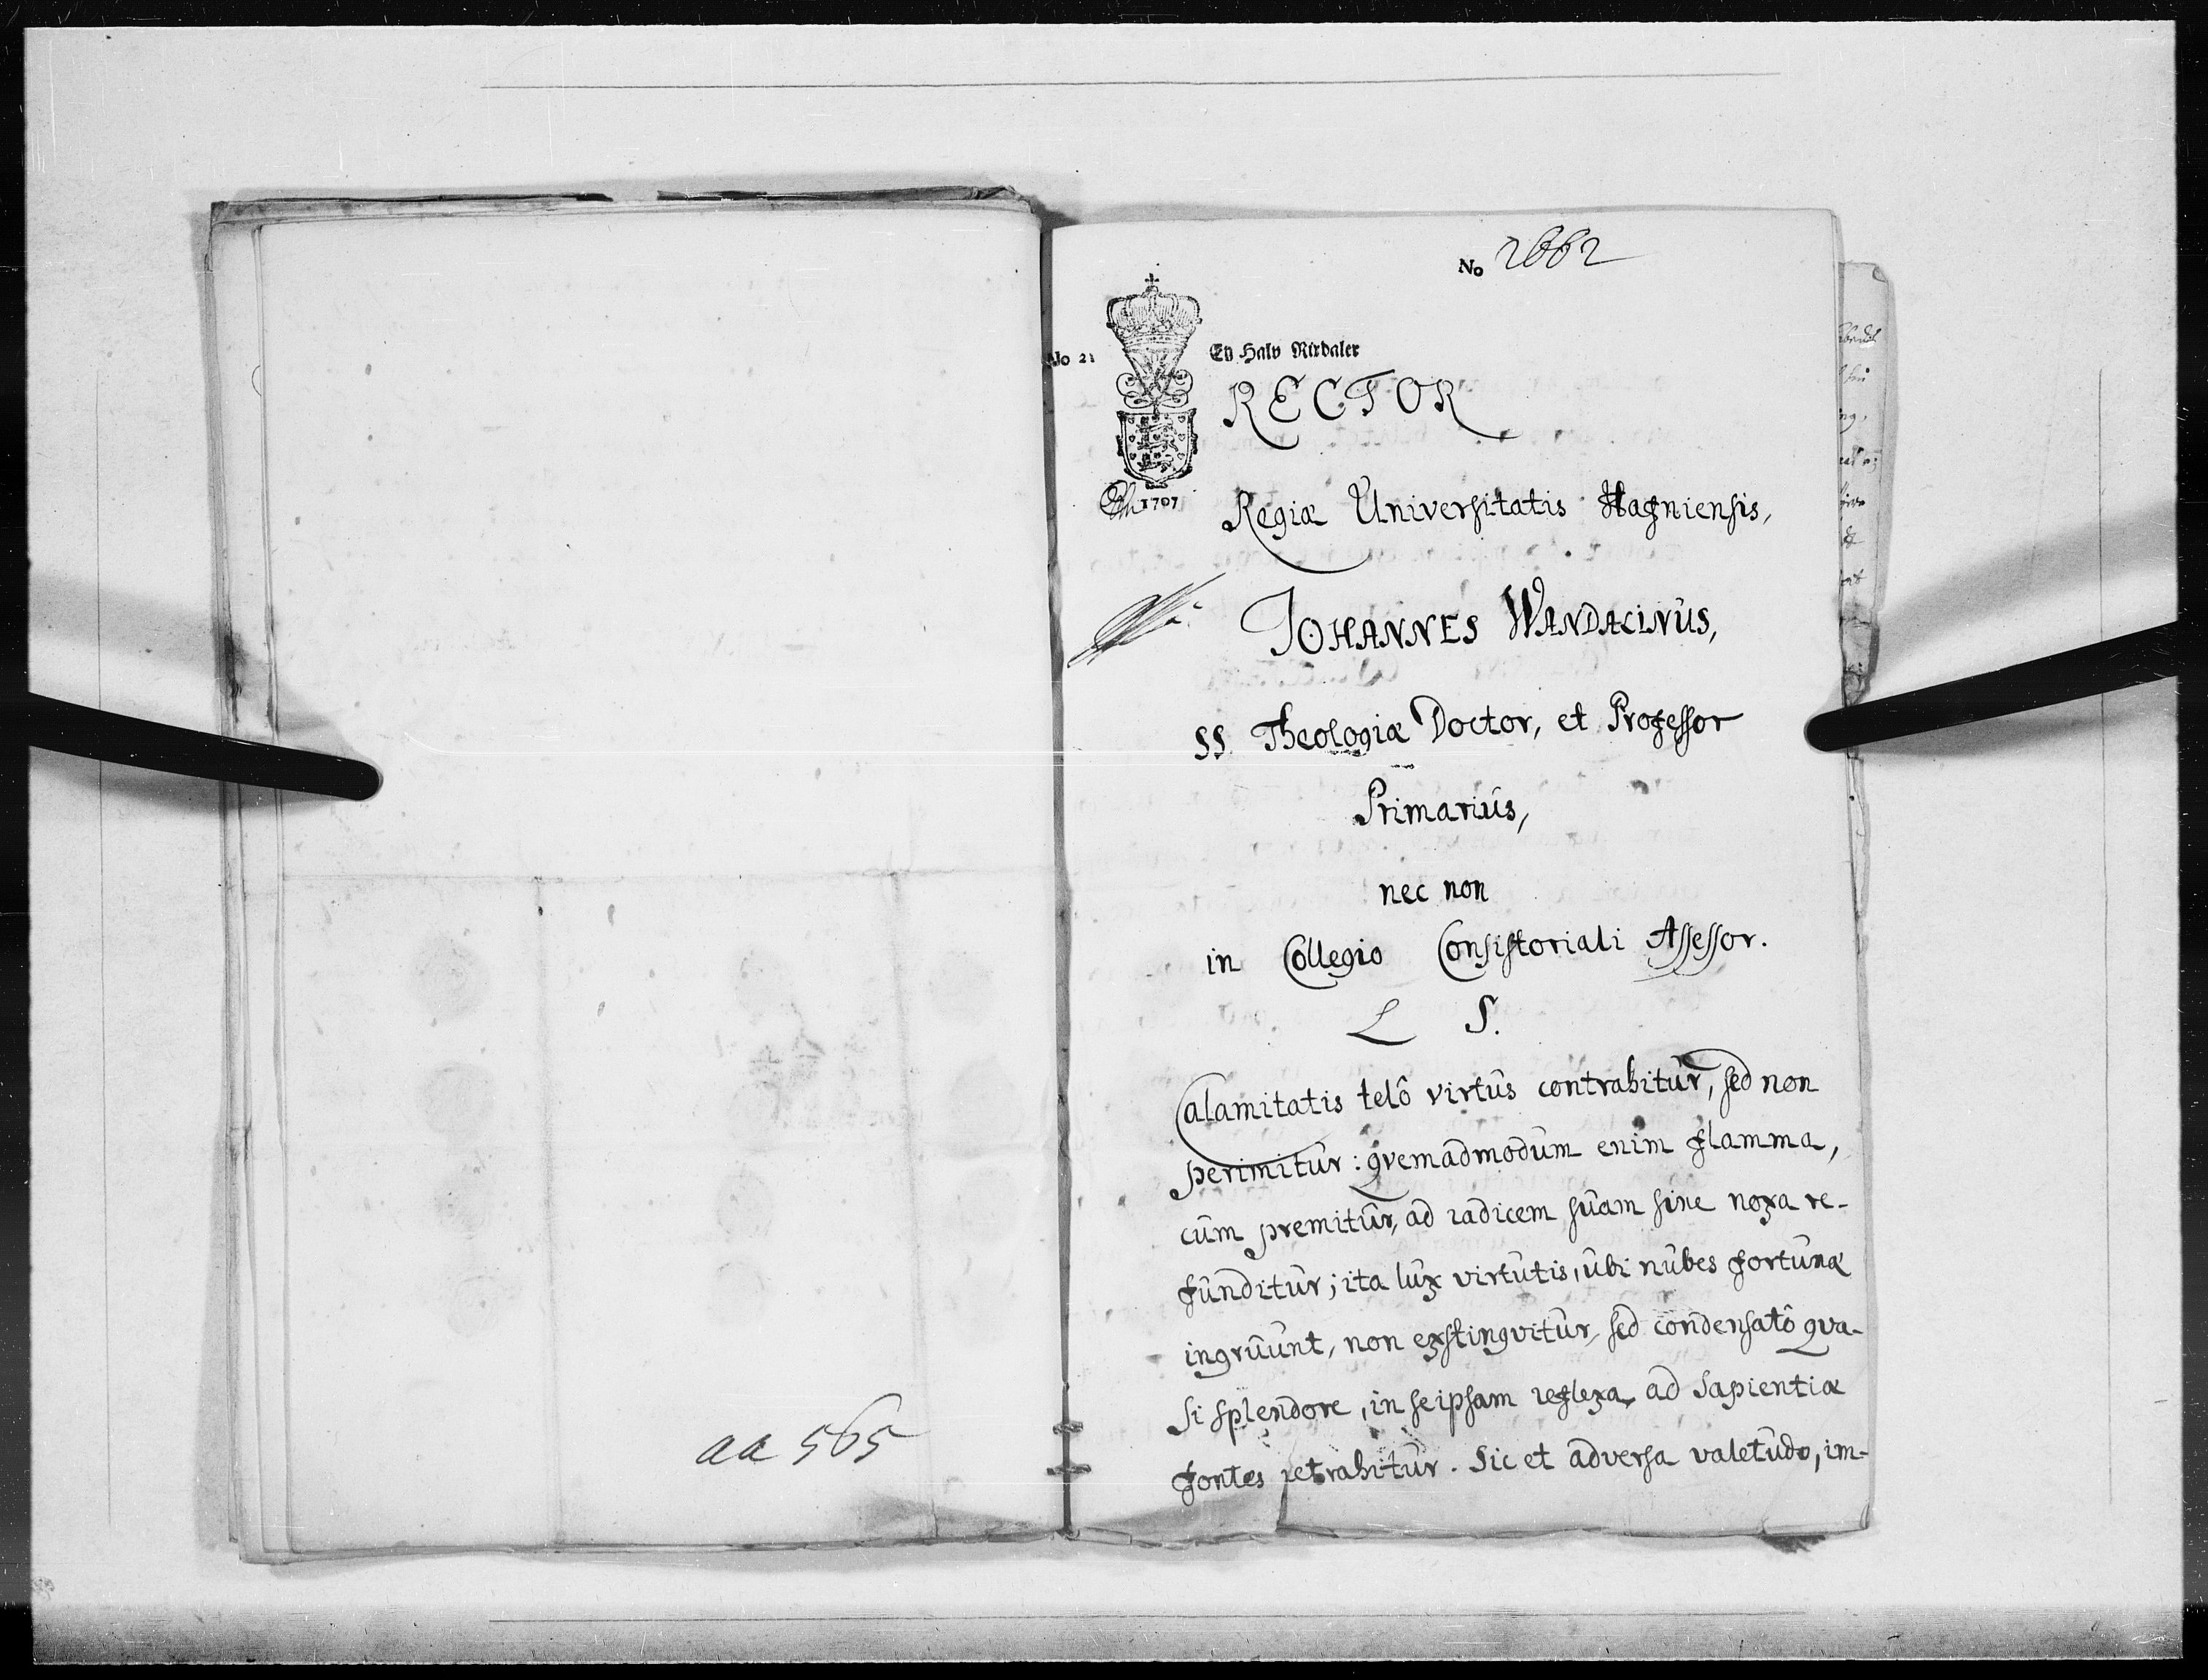 aa 565
No 2662
No 21
En Halv Rixdaler
1707
RECTOR
Regiæ Universitatis Hafniensis,
JOHANNES WANDALINUS,
SS Theologiæ Doctor, et Professor
Primariûs,
nec non
in Collegio Consistoriali Assessor.
L S.
Calamitatis telô virtûs contrahitûr, sed non
perimitûr: qvemadmodûm enim flamma,
cûm premitûr, ad radicem sûam sine noxa re-
fûnditûr; ita lûx virtûtis, ûbi nûbes fortûnæ
ingrûûnt, non exstingvitûr, sed condensatô qva-
si splendore, in seipsam reflexa, ad Sapientiæ
fontes retrahitûr. Sic et adversa valetûdo, im-